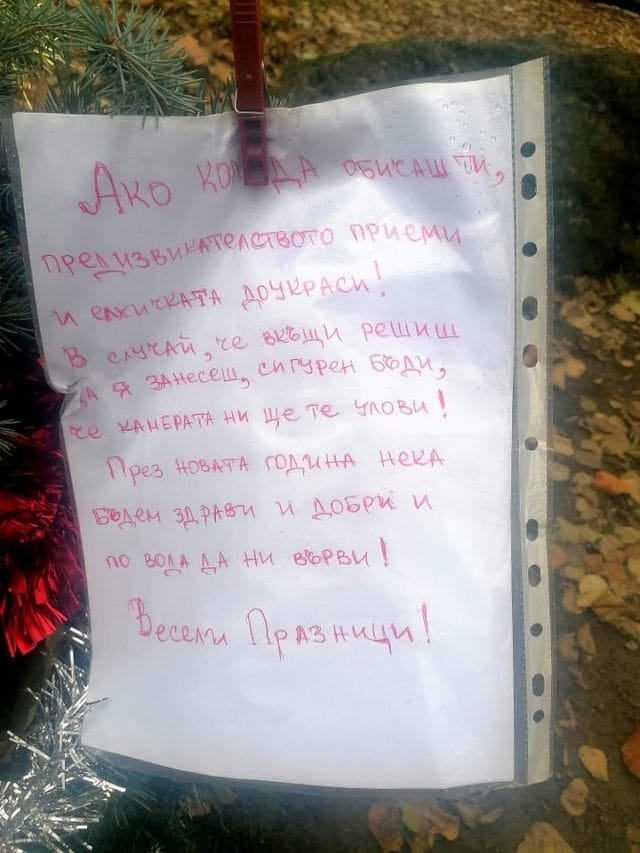 Ако Коледа обичаш ти,
предизвикателството приеми
и елхичката доукраси!
В случай, че вкъщи решиш
да я занесеш, сигурен бъди,
че камерата ни ще те улови!
През новата година нека
бъдем здрави и добри и
по вода да ни върви!
Весели Празници!